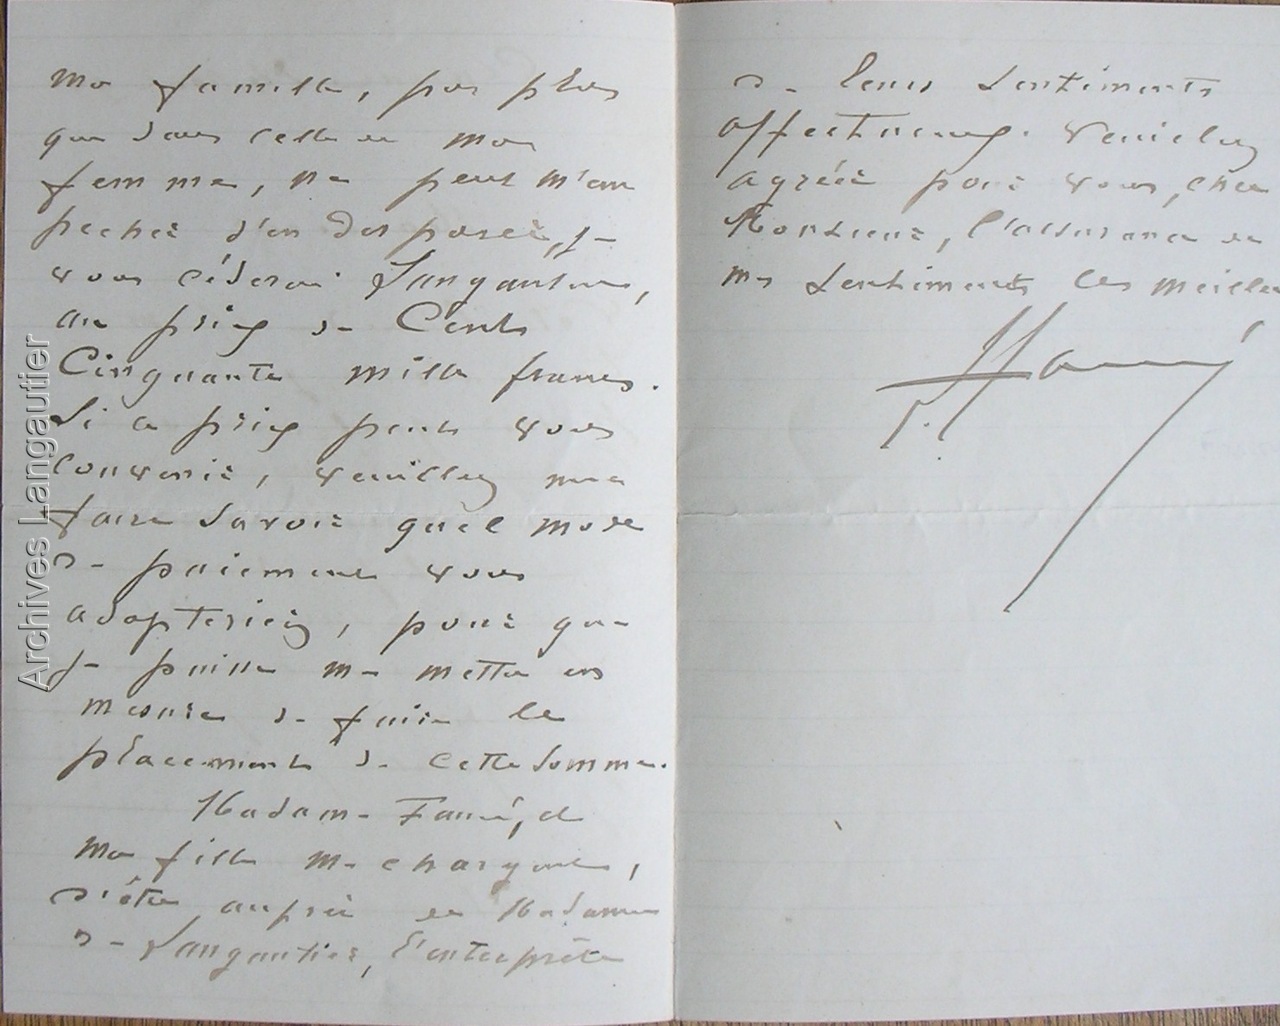 ma famille, pas plus
que dans celle de ma
femme, ne peut m'em
pecher d'en disposer, je
vous céderai Langautier,
au prix de Cents
Cinquante mille francs.
Si ce prix peut vous
convenir, veuillez me
faire savoir quel mode
de paiement vous
adopteriez, pour que
je puisse me mettre en
mesure de faire le
placement de cette somme.
Madame Fauré, et
ma fille me chargent,
d'être auprès de Madame
de Langautier, l'interprète
de leurs sentiments
affectueux. Veuillez
agréer pour vous, cher
Monsieur, l'assurance de
mes sentiments les meilleu
Fauré
Archives Langautier